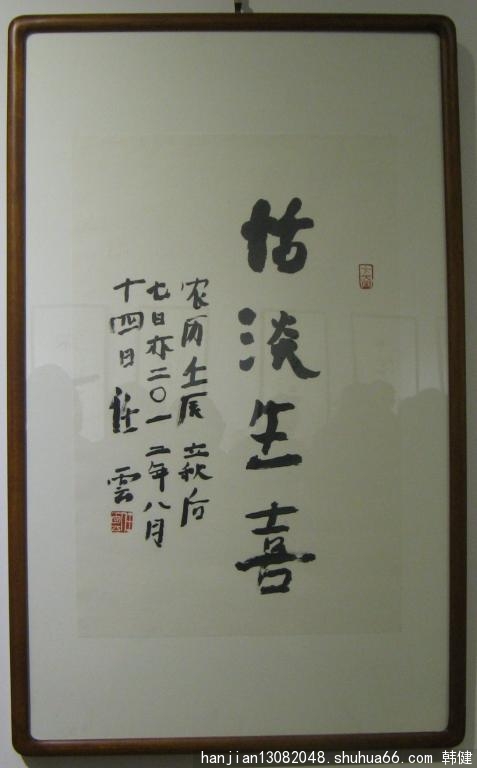 恬淡生喜
农历壬辰立秋后
七日亦二〇一二年八月
十四日 任雲
hanjian13082048.shuhua66.com 韩健